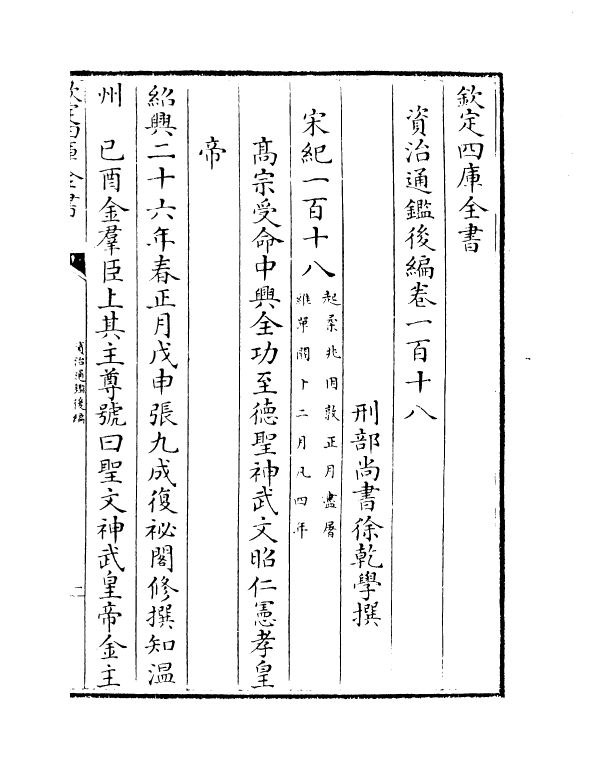 欽定四庫全書
資治通鑑後編卷一百十八
刑部尚書徐乾學撰
宋紀一百十八
起柔兆困敦正月盡屠
維單閼十二月凡四年
髙宗受命中興全功至德聖神武文昭仁憲孝皇
帝
紹興二十六年春正月戊申張九成復祕閣修撰知溫
州 已酉金羣臣上其主尊號曰聖文神武皇帝金主
欽定四庫全書
資治通鑑後編